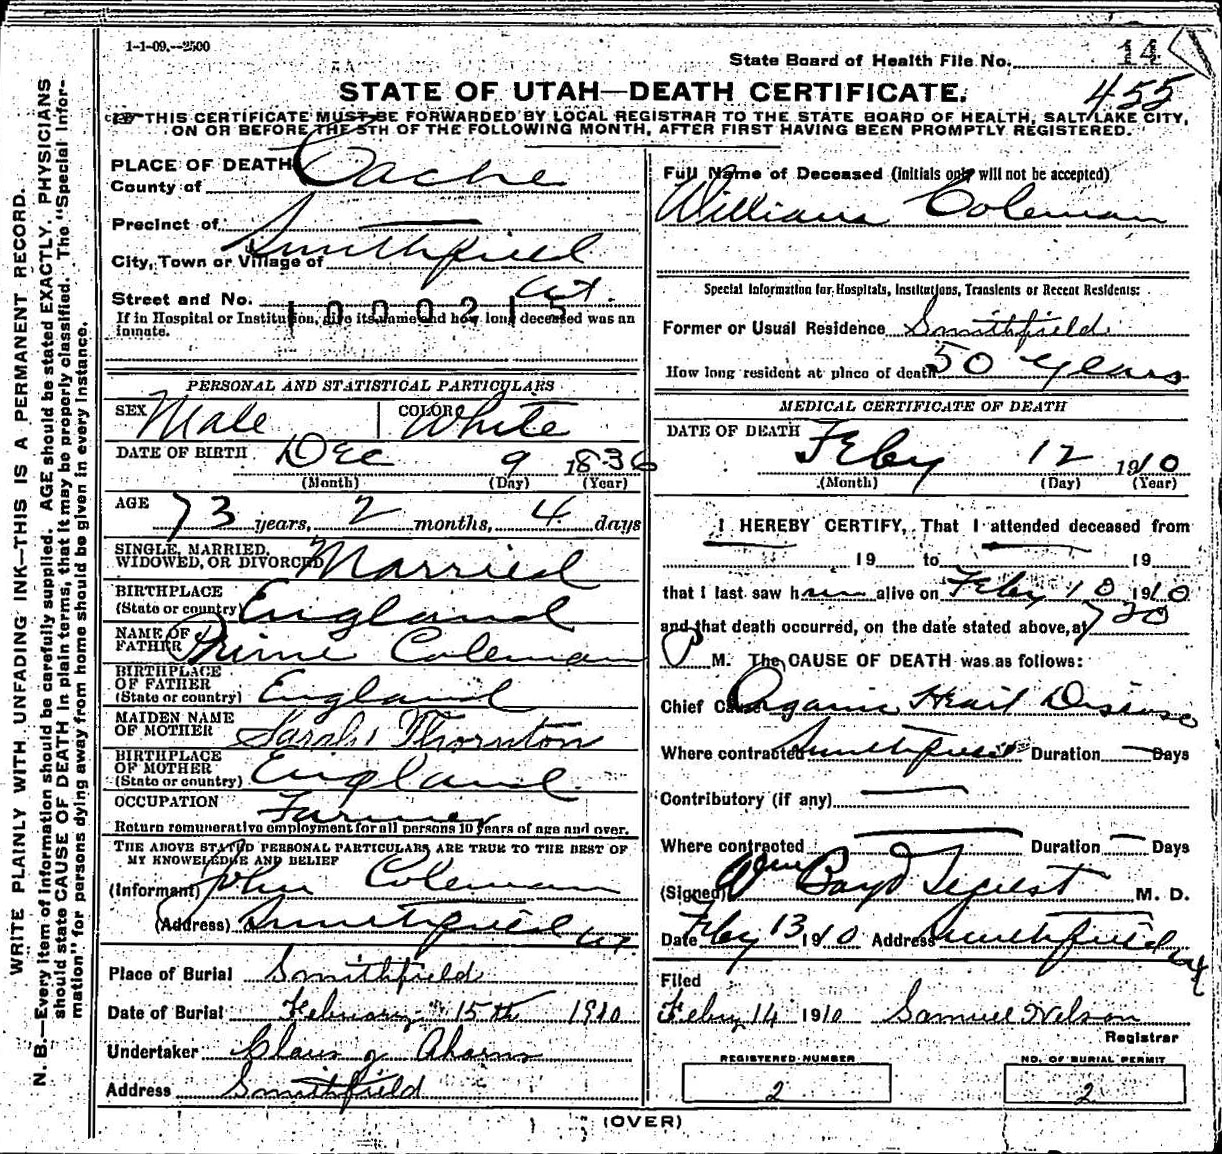 1-1-09.--2500
State Board of Health File No. 14
STATE OF UTAH—DEATH CERTIFICATE.
455
THIS CERTIFICATE MUST BE FORWARDED BY LOCAL REGISTRAR TO THE STATE BOARD OF HEALTH, SALT LAKE CITY,
ON OR BEFORE THE 5TH OF THE FOLLOWING MONTH, AFTER FIRST HAVING BEEN PROMPTLY REGISTERED.
PLACE OF DEATH
County of Cache
Precinct of
City, Town or Village of Smithfield
Street and No. Ut.
1000215
If in Hospital or Institution, give its name and how long deceased was an
inmate.
PERSONAL AND STATISTICAL PARTICULARS
SEX Male COLOR White
DATE OF BIRTH Dec 9 1836
(Month) (Day) (Year)
AGE
73 years, 2 months, 4 days
SINGLE, MARRIED,
WIDOWED, OR DIVORCED Married
BIRTHPLACE
(State or country) England
NAME OF
FATHER Prime Coleman
BIRTHPLACE
OF FATHER
(State or country) England
MAIDEN NAME
OF MOTHER Sarah Thornton
BIRTHPLACE
OF MOTHER
(State or country) England
OCCUPATION Farmer
Return remunerative employment for all persons 10 years of age and over.
THE ABOVE STATED PERSONAL PARTICULARS ARE TRUE TO THE BEST OF
MY KNOWELEDGE AND BELIEF
(Informant) John Coleman
(Address) Smithfield Ut
Place of Burial Smithfield
Date of Burial February 15th 1910
Undertaker Claus J Ahorns
Address Smithfield
Full Name of Deceased (Initials only will not be accepted)
William Coleman
Special Information for Hospitals, Institutions, Transients or Recent Residents:
Former or Usual Residence Smithfield
How long resident at place of death 50 years
MEDICAL CERTIFICATE OF DEATH
DATE OF DEATH Feby 12 1910
(Month) (Day) (Year)
I HEREBY CERTIFY, That I attended deceased from
19 to 19
that I last saw him alive on Feby 10 1910
and that death occurred, on the date stated above, at 730
P M. The CAUSE OF DEATH was as follows:
Chief Cause Organic Heart Disease
Where contracted Smithfield Duration Days
Contributory (if any)
Where contracted Duration Days
(Signed) Wm Boyd M. D.
Date Feby 13 1910 Address Smithfield Ut
Filed
Feby 14 1910 Samuel Nelson
Registrar
REGISTERED NUMBER
2
NO. OF BURIAL PERMIT
2
(OVER)
WRITE PLAINLY WITH UNFADING INK—THIS IS A PERMANENT RECORD.
N. B.—Every item of information should be carefully supplied. AGE should be stated EXACTLY. PHYSICIANS
should state CAUSE OF DEATH in plain terms, that it may be properly classified. The "Special Infor-
mation" for persons dying away from home should be given in every instance.